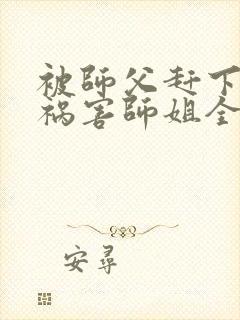 被師父赶下
祸害師姐全
安尋